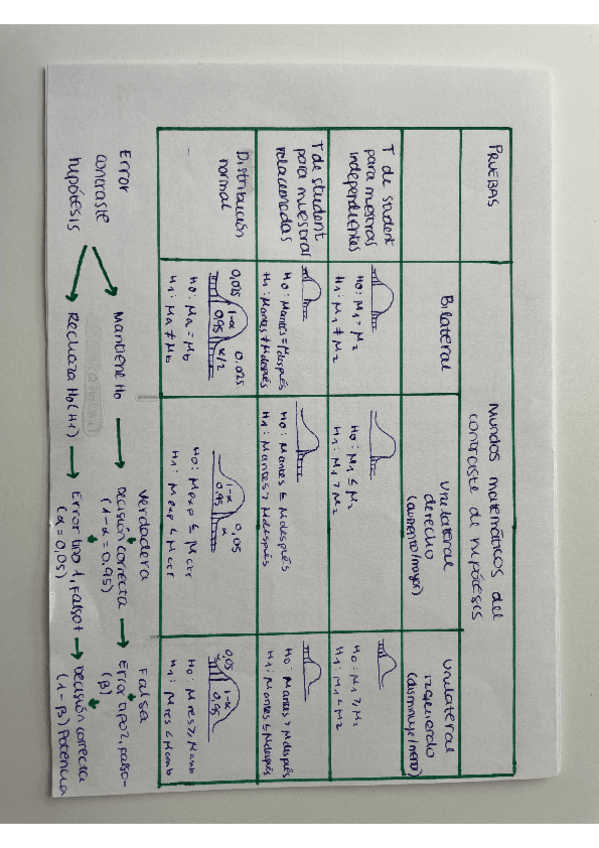 PRUEBAS
Mundos matemáticos del
contraste de hipótesis
Bilateral
Unilateral
derecho
(aumento/mayor)
Unilateral
izquierdo
(disminuye/menor)
T de student
para muestras
independientes
H0: M1 = M2
H1: M1 ≠ M2
H0: M1 ≤ M2
H1: M1 > M2
H0: M1 ≥ M2
H1: M1 < M2
T de student
para muestras
relacionadas
H0: Mantes = Mdespués
H1: Mantes ≠ Mdespués
H0: Mantes ≤ Mdespués
H1: Mantes > Mdespués
H0: Mantes > Mdespués
H1: Mantes ≤ Mdespués
Distribución
normal
0,025
1-α
0,95
α/2
0.025
H0: Ma = Mb
H1: Ma ≠ Mb
1-α
0.95
α
0,05
H0: Mexp ≤ Mctr
H1: Mexp > Mctr
0,05
1-α
0,95
H0: Mres ≥ Mamb
H1: Mres < Mamb
Verdadera
Falsa
Error
contraste
hipótesis
Mantiene H0
Decisión correcta
(1-α = 0,95)
Error tipo 2, falso-
(β)
Rechaza H0 (H1)
Error tipo 1, falso+
(α = 0,05)
Decisión correcta
(1-β) Potencia